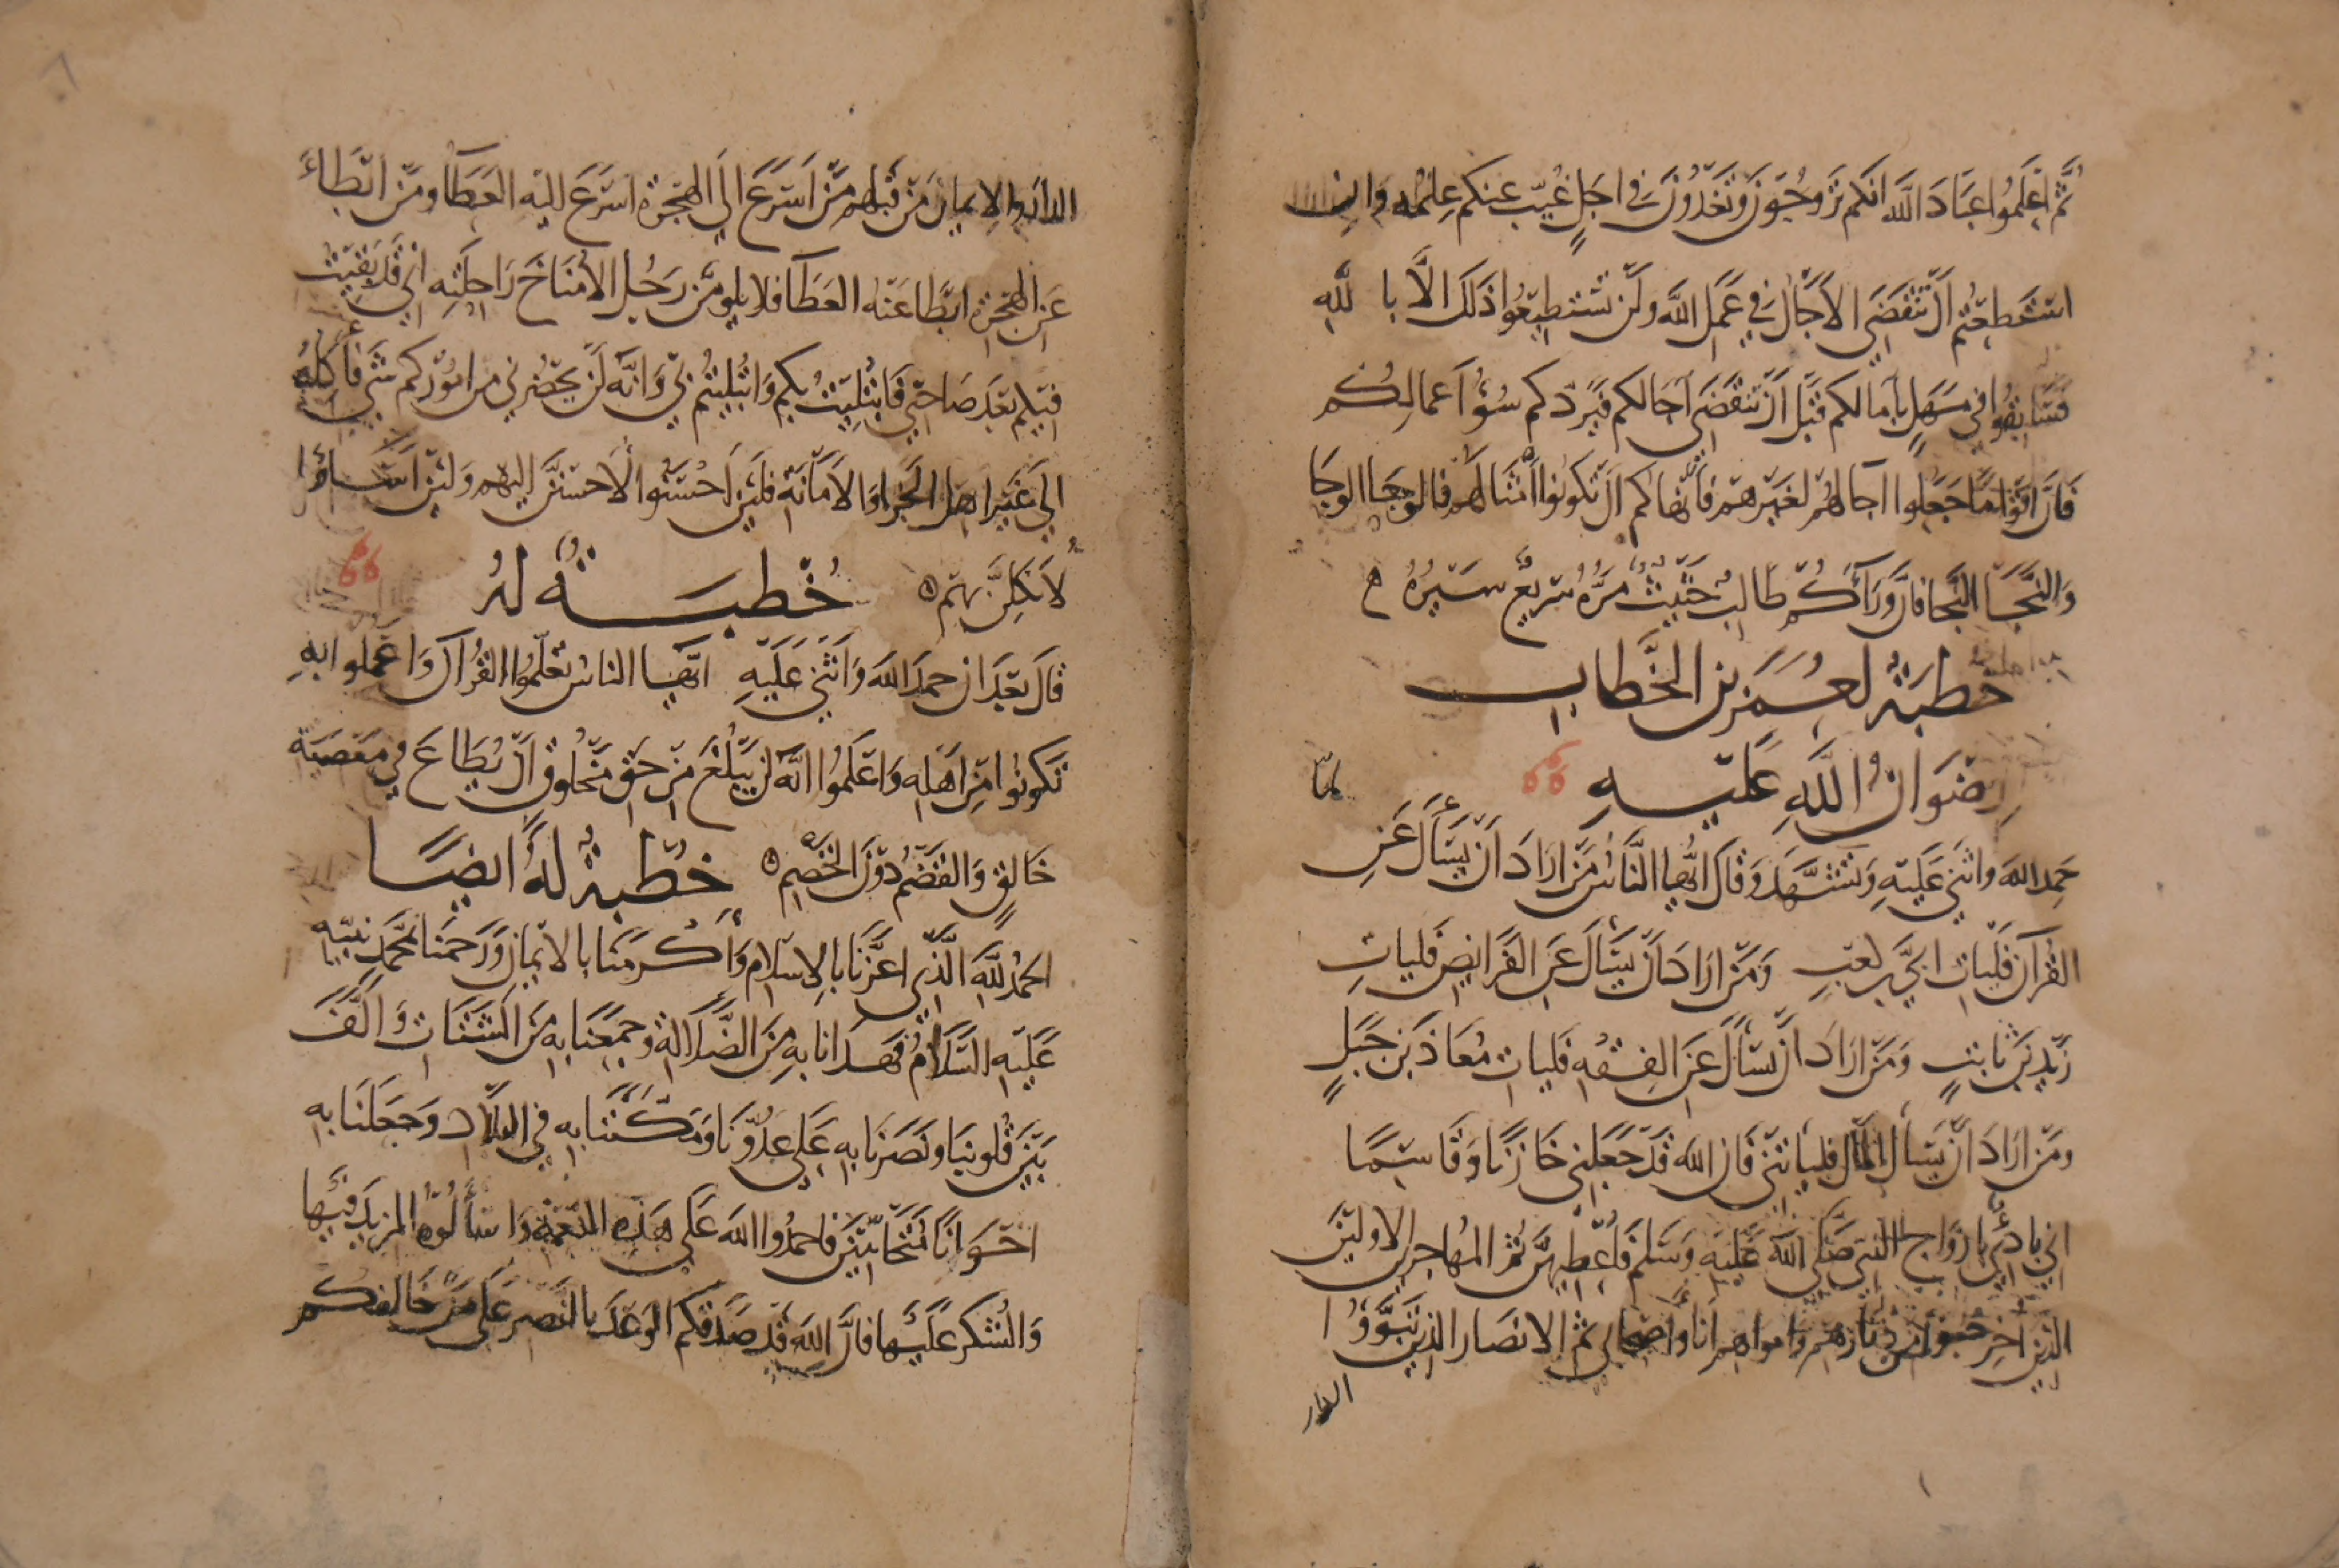 ثُمَّ اعْلَمُوا عِبَادَ اللَّهِ انكم تَرُوحُونَ وَتَغْدُونَ فِي اجَلٍ غُيِّبَ عنكم عِلْمُه وَانِ
استطعتم الّ تنقضي الآجال في عمل الله ولن تستطيعوا ذلك الّا با لله
فسابقوا في مَهَلٍ بآمالكم قبل ان تنقضي آجالكم فيردكم سُوُ اعمالِكُم
فَانَّ اقوامًا جَعَلوا آجالهم لغيرهم فأنهاكم ان تكونوا امثالهم فالوجا الوجا
وَالنَّجَا النَّجَا فان وَرَآءَكُم طَالِبٌ حَثِيثٌ مَرُّهُ سَرِيعٌ سَيرُهُ
خطبة لعُمَر بن الخَطاب
رِضوَانُ اللَّهِ عَليهِ
حَمِدَ الله واثنى عَليهِ وَتشَهَّدَ وَقَالَ ايُّها النَّاس مَن ارَادَ ان يسأل عَن
القرآن فليات ابيَّ بن كعب وَمَن ارَادَ ان يسأل عن الفَرَايض فليات
زيد بن ثابتٍ وَمَن ارَادَ ان يسأل عَن الفِقه فليات مُعَاذ بن جَبَلٍ
ومن ارادَ ان يسأل المال فلياتني فان الله قد جعلني خازنا وقاسمًا
اني بادئ بازواج النبي صَلى الله عليه وَسَلم فأعطيهن ثم المهاجرين الاولين
الذين أُخرِجُوا من ديارهم وامواهم انا وأصحابي ثم الانصار الذين تبوَّوُا
الدار
الدار والايمان من قبلهم من اسرع الى الهجرة اسرع اليه العطا ومن ابطاء
عن الهجرة ابطا عنه العطا فلا يلومن رَجُل الا مُنَاخَ رَاحلته اني قد بقيت
فيكم بعد صاحبي فابتُليت بكم وابتليتم بي وَانه لن يحضرني من امُوركم شي فأكله
الى غير اهل الجزا والامانة فلئن احسَنُوا لأحسننّ اليهم ولئن اسَاؤا
لأنكلنّ بهم خُطبَة لهُ
قال بعد ان حمد الله واثنى عَليه ايّها الناس تعلموا القرآن وَاعمَلوا بهِ
تكونوا من اهله واعلموا انه لن يبلغ من حَق مخلوق ان يُطاع في معصية
خَالقٍ وَالقضم دون الخَضم خُطبة لهُ ايضًا
الحمد لله الذي اعزنا بالاسلام وَأكرمنا بالايمان وَرَحمنا بمحمد نبيه
عَليه السَّلَامُ فهدانا به من الضلالة وجمعنا به من الشتات وَالَّفَ
بَين قلوبنا ونصرنا به على عدُوّنَا ومكننا به في البلاد وجَعَلنَا به
اخوانًا متحابين فاحمدُوا الله عَلى هذه النعمة واسألوه المزيد فيها
وَالشكر عليها فان الله قد صدقكم الوعد بالنصر على من خالفكم